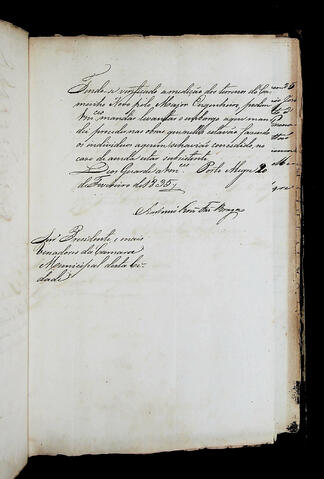 Tendo-se verificado a medição dos terrenos do Ca-
minho Novo pelo Major Engenheiro, podem
V.m.ces mandar levantar o embargo a que man-
da proceder nas obras que nelle estavão fazendo
os individuos a quem se havião concedido, no
caso de ainda estar subsistente.
Deos Guarde a V.m.ces Porto Alegre 20
de Fevereiro de 1835
Antonio Roiz Fes Braga
Snr.s Presidente, e mais
Vereadores da Camara
Municipal desta Ci-
dade